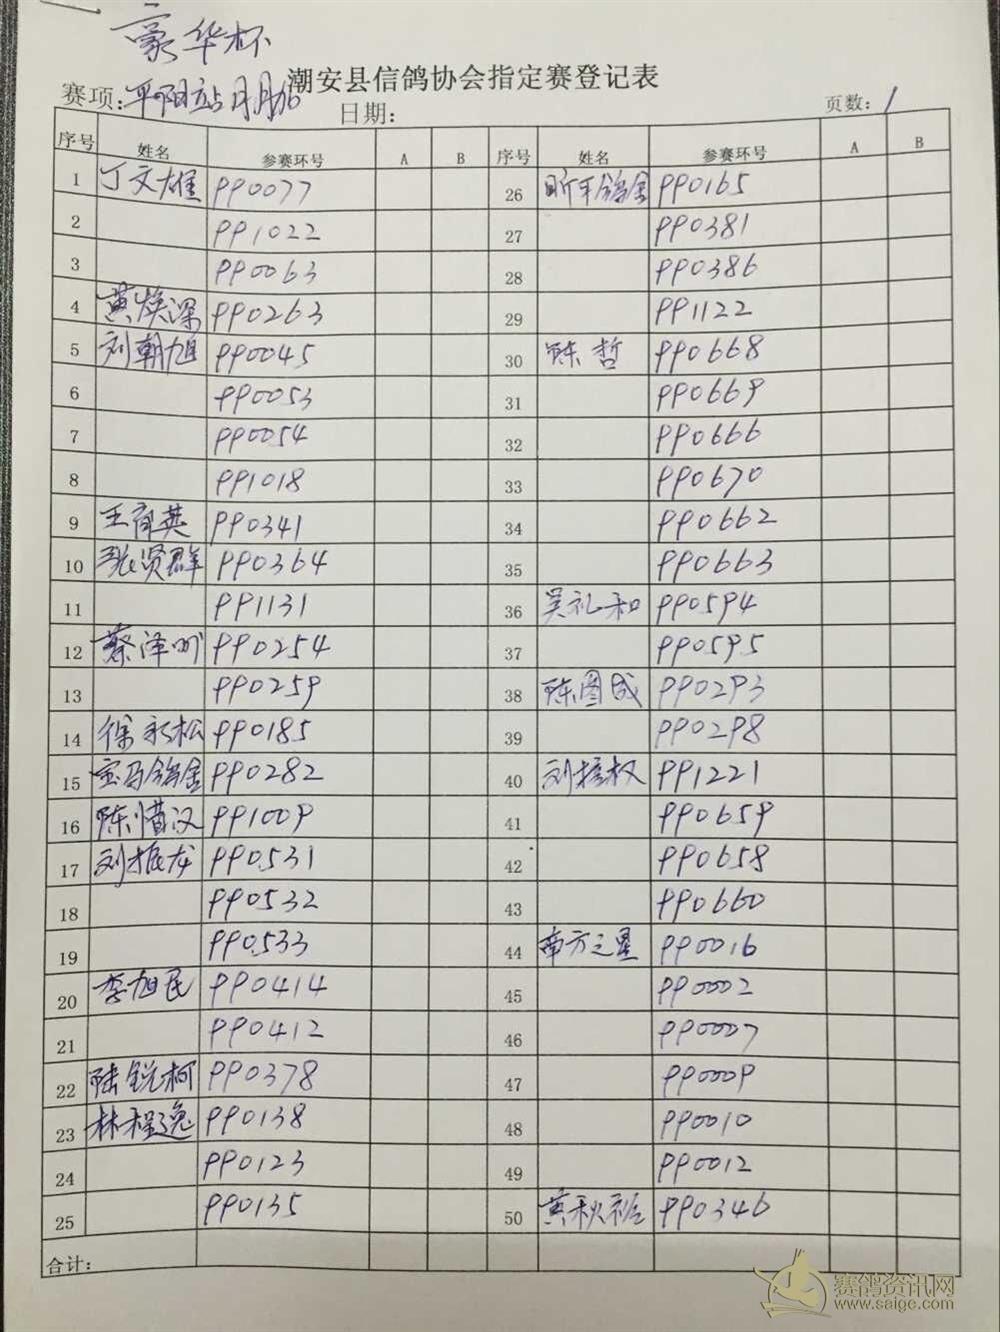 豪华杯
潮安县信鸽协会指定赛登记表
赛项:平阳站月月加 日期: 页数: 1
序号 姓名 参赛环号 A B 序号 姓名 参赛环号 A B
1 丁文雄 PP0077 26 昕平鸽舍 PP0165
2 PP1022 27 PP0381
3 PP0063 28 PP0386
4 黄焕深 PP0263 29 PP1122
5 刘朝旭 PP0045 30 陈哲 PP0668
6 PP0053 31 PP0669
7 PP0054 32 PP0666
8 PP1018 33 PP0670
9 王育英 PP0341 34 PP0662
10 张贤群 PP0364 35 PP0663
11 PP1131 36 吴礼和 PP0594
12 蔡泽州 PP0254 37 PP0595
13 PP0259 38 陈图成 PP0293
14 徐永松 PP0185 39 PP0298
15 宝马鸽舍 PP0282 40 刘权 PP1221
16 陈惜汉 PP1009 41 PP0659
17 刘振龙 PP0531 42 PP0658
18 PP0532 43 PP0660
19 PP0533 44 南方之星 PP0016
20 李旭民 PP0414 45 PP0002
21 PP0412 46 PP0007
22 陆锐柯 PP0378 47 PP0009
23 林程逸 PP0138 48 PP0010
24 PP0123 49 PP0012
25 PP0135 50 黄秋裕 PP0346
合计:
赛鸽资讯网
www.saige.com